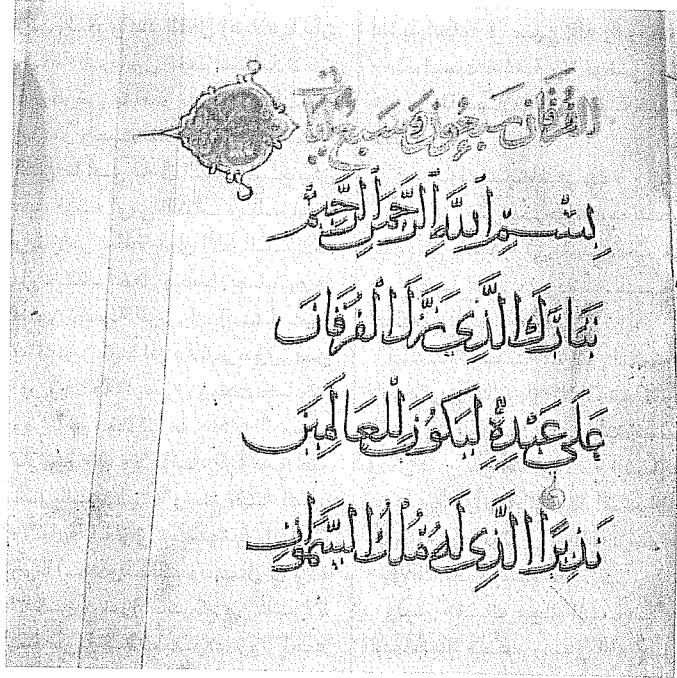 الفرقان سبعون وسبع آيات
بِسْمِ ٱللَّهِ ٱلرَّحْمَٰنِ ٱلرَّحِيمِ
تَبَارَكَ الَّذِي نَزَّلَ الْفُرْقَانَ
عَلَى عَبْدِهِ لِيَكُونَ لِلْعَالَمِينَ
نَذِيرًا الَّذِي لَهُ مُلْكُ السَّمَوَاتِ